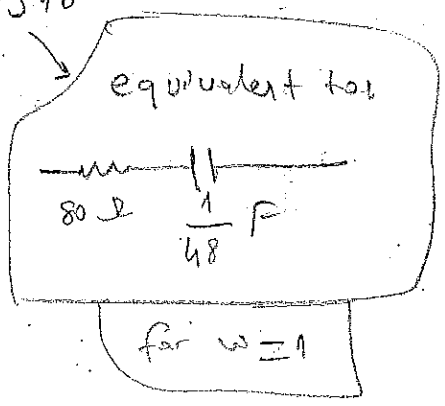 equivalent to
80 Ω
1
48
F
for w = 1